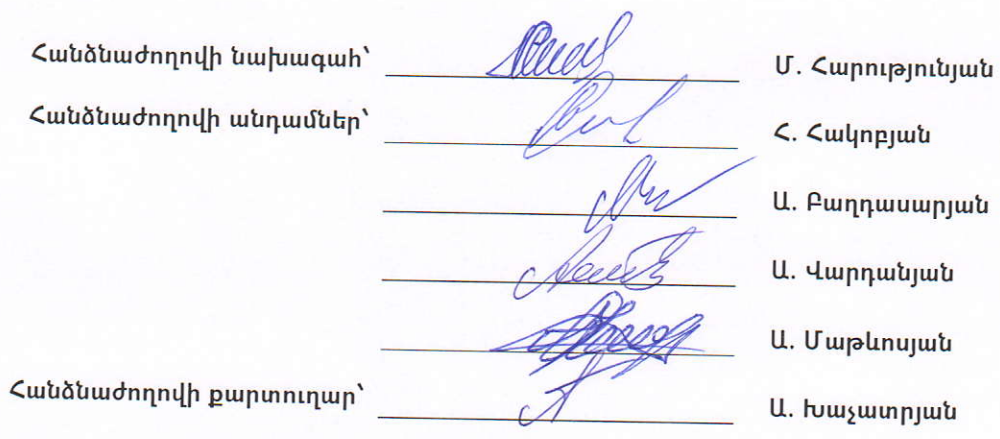 Հանձնաժողովի նախագահ՝ Մ. Հարությունյան
Հանձնաժողովի անդամներ՝ Հ. Հակոբյան
Ա. Բաղդասարյան
Ա. Վարդանյան
Ա. Մաթևոսյան
Հանձնաժողովի քարտուղար՝ Ա. Խաչատրյան